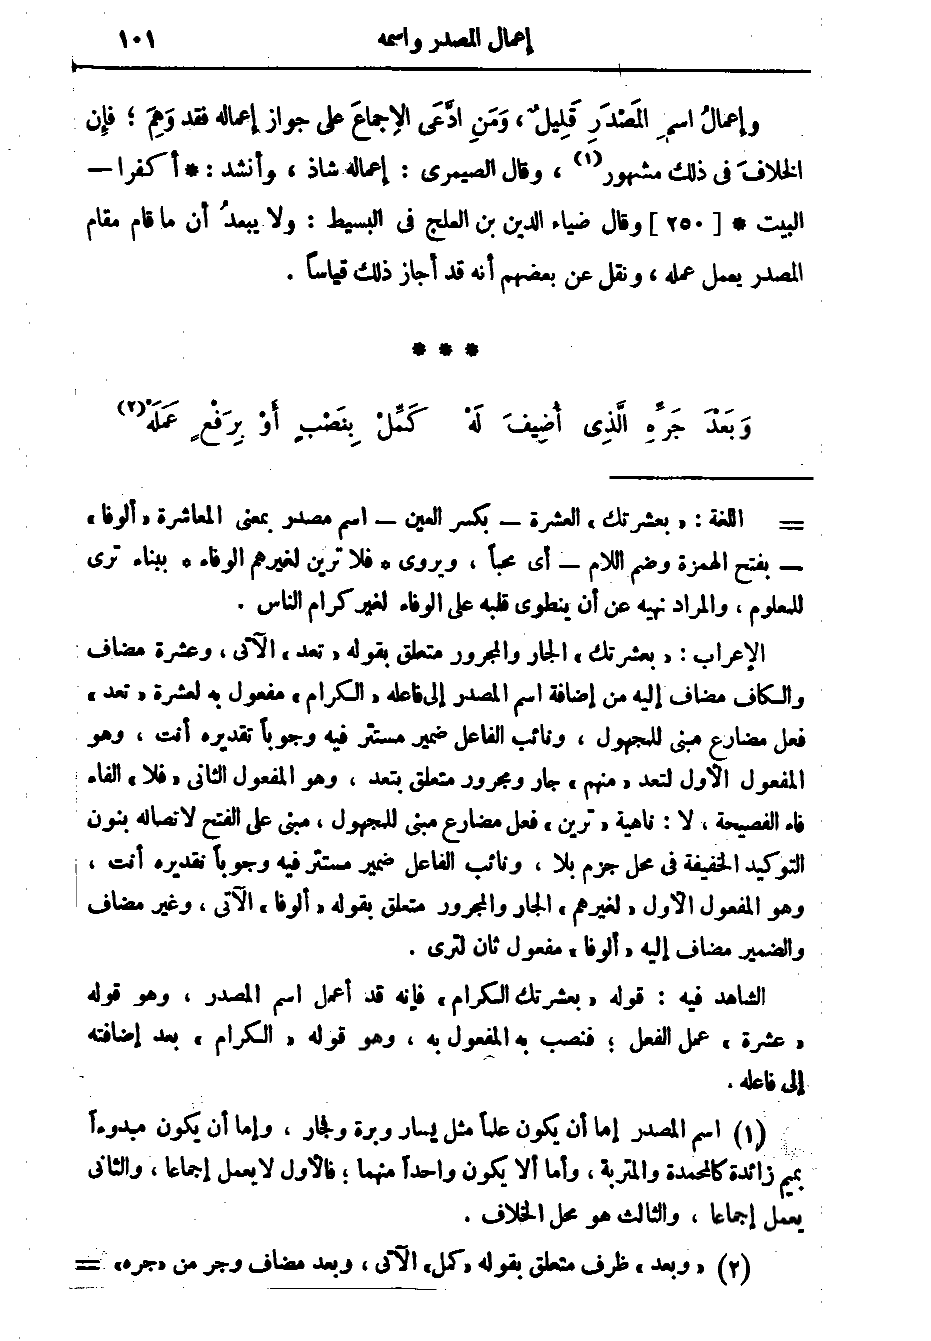 إعمال المصدر واسمه ١٠١
وإعمالُ اسمِ المَصْدَرِ قَلِيلٌ، وَمَنِ ادَّعَى الإجماعَ على جواز إعماله فقد وَهِمَ ؛ فإن
الخلافَ فى ذلك مشهور(١) ، وقال الصيمرى : إعماله شاذ ، وأنشد : * أكفرا —
البيت * [ ٢٥٠ ] وقال ضياء الدين بن العلج فى البسيط : ولا يبعدُ أن ما قام مقام
المصدر يعمل عمله ، ونقل عن بعضهم أنه قد أجاز ذلك قياساً .
* * *
وَبَعْدَ جَرِّهِ الَّذِى أُضِيفَ لَهْ كَمِّلْ بِنَصْبٍ أَوْ بِرَفْعٍ عَمَلَهْ(٢)
= اللغة : « بعشرتك » العشرة — بكسر العين — اسم مصدر بمعنى المعاشرة « ألوفا »
— بفتح الهمزة وضم اللام — أى محباً ، ويروى * فلا ترين لغيرهم الوفاء * ببناء ترى
للمعلوم ، والمراد نهيه عن أن ينطوى قلبه على الوفاء لغير كرام الناس .
الإعراب : « بعشرتك » الجار والمجرور متعلق بقوله « تعد » الآتى ، وعشرة مضاف
والكاف مضاف إليه من إضافة اسم المصدر إلى فاعله « الكرام » مفعول به لعشرة « تعد »
فعل مضارع مبنى للمجهول ، ونائب الفاعل ضمير مستتر فيه وجوباً تقديره أنت ، وهو
المفعول الأول لتعد « منهم » جار ومجرور متعلق بتعد ، وهو المفعول الثانى « فلا » الفاء
فاء الفصيحة ، لا : ناهية « ترين » فعل مضارع مبنى للمجهول ، مبنى على الفتح لاتصاله بنون
التوكيد الخفيفة فى محل جزم بلا ، ونائب الفاعل ضمير مستتر فيه وجوباً تقديره أنت ،
وهو المفعول الأول « لغيرهم » الجار والمجرور متعلق بقوله « ألوفا » الآتى ، وغير مضاف
والضمير مضاف إليه « ألوفا » مفعول ثان لترى .
الشاهد فيه : قوله « بعشرتك الكرام » فإنه قد أعمل اسم المصدر ، وهو قوله
« عشرة » عمل الفعل ؛ فنصب به المفعول به ، وهو قوله « الكرام » بعد إضافته
إلى فاعله .
(١) اسم المصدر إما أن يكون علماً مثل يسار وبرة وفجار ، وإما أن يكون مبدوءاً
بميم زائدة كالمحمدة والمتربة ، وأما ألا يكون واحداً منهما ؛ فالأول لا يعمل إجماعا ، والثانى
يعمل إجماعا ، والثالث هو محل الخلاف .
(٢) « وبعد » ظرف متعلق بقوله « كمل » الآتى ، وبعد مضاف وجر من « جره » =